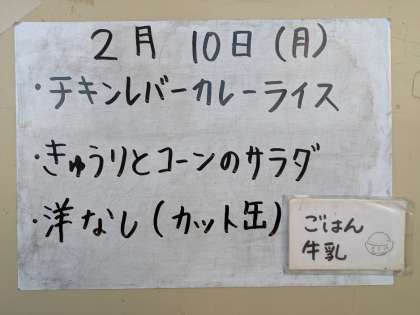 2月 10日 (月)
・チキンレバーカレーライス
・きゅうりとコーンのサラダ
・洋なし(カット缶)
ごはん
牛乳